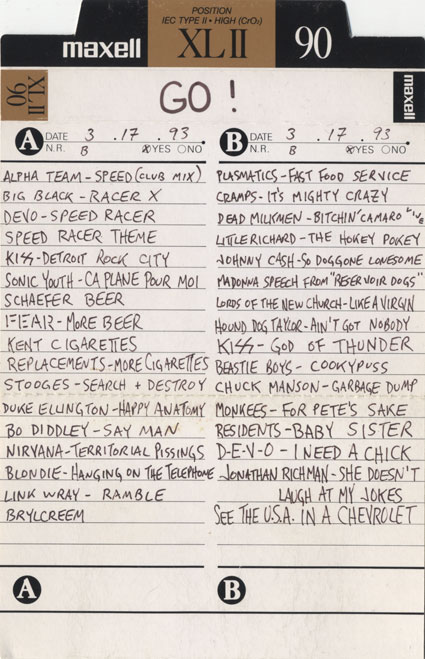 POSITION
IEC TYPE II • HIGH (CrO₂)
maxell XL II 90
XL II 90
GO !
maxell
A DATE 3 . 17 . 93
N.R. B ⊗YES ○NO
ALPHA TEAM - SPEED (CLUB MIX)
BIG BLACK - RACER X
DEVO - SPEED RACER
SPEED RACER THEME
KISS - DETROIT ROCK CITY
SONIC YOUTH - CA PLANE POUR MOI
SCHAEFER BEER
FEAR - MORE BEER
KENT CIGARETTES
REPLACEMENTS - MORE CIGARETTES
STOOGES - SEARCH + DESTROY
DUKE ELLINGTON - HAPPY ANATOMY
BO DIDDLEY - SAY MAN
NIRVANA - TERRITORIAL PISSINGS
BLONDIE - HANGING ON THE TELEPHONE
LINK WRAY - RAMBLE
BRYLCREEM
A
B DATE 3 . 17 . 93
N.R. B ⊗YES ○NO
PLASMATICS - FAST FOOD SERVICE
CRAMPS - IT'S MIGHTY CRAZY
DEAD MILKMEN - BITCHIN' CAMARO
LITTLE RICHARD - THE HOKEY POKEY
JOHNNY CASH - SO DOGGONE LONESOME
MADONNA SPEECH FROM "RESERVOIR DOGS"
LORDS OF THE NEW CHURCH - LIKE A VIRGIN
HOUND DOG TAYLOR - AIN'T GOT NOBODY
KISS - GOD OF THUNDER
BEASTIE BOYS - COOKYPUSS
CHUCK MANSON - GARBAGE DUMP
MONKEES - FOR PETE'S SAKE
RESIDENTS - BABY SISTER
D-E-V-O - I NEED A CHICK
JONATHAN RICHMAN - SHE DOESN'T
LAUGH AT MY JOKES
SEE THE U.S.A. IN A CHEVROLET
B